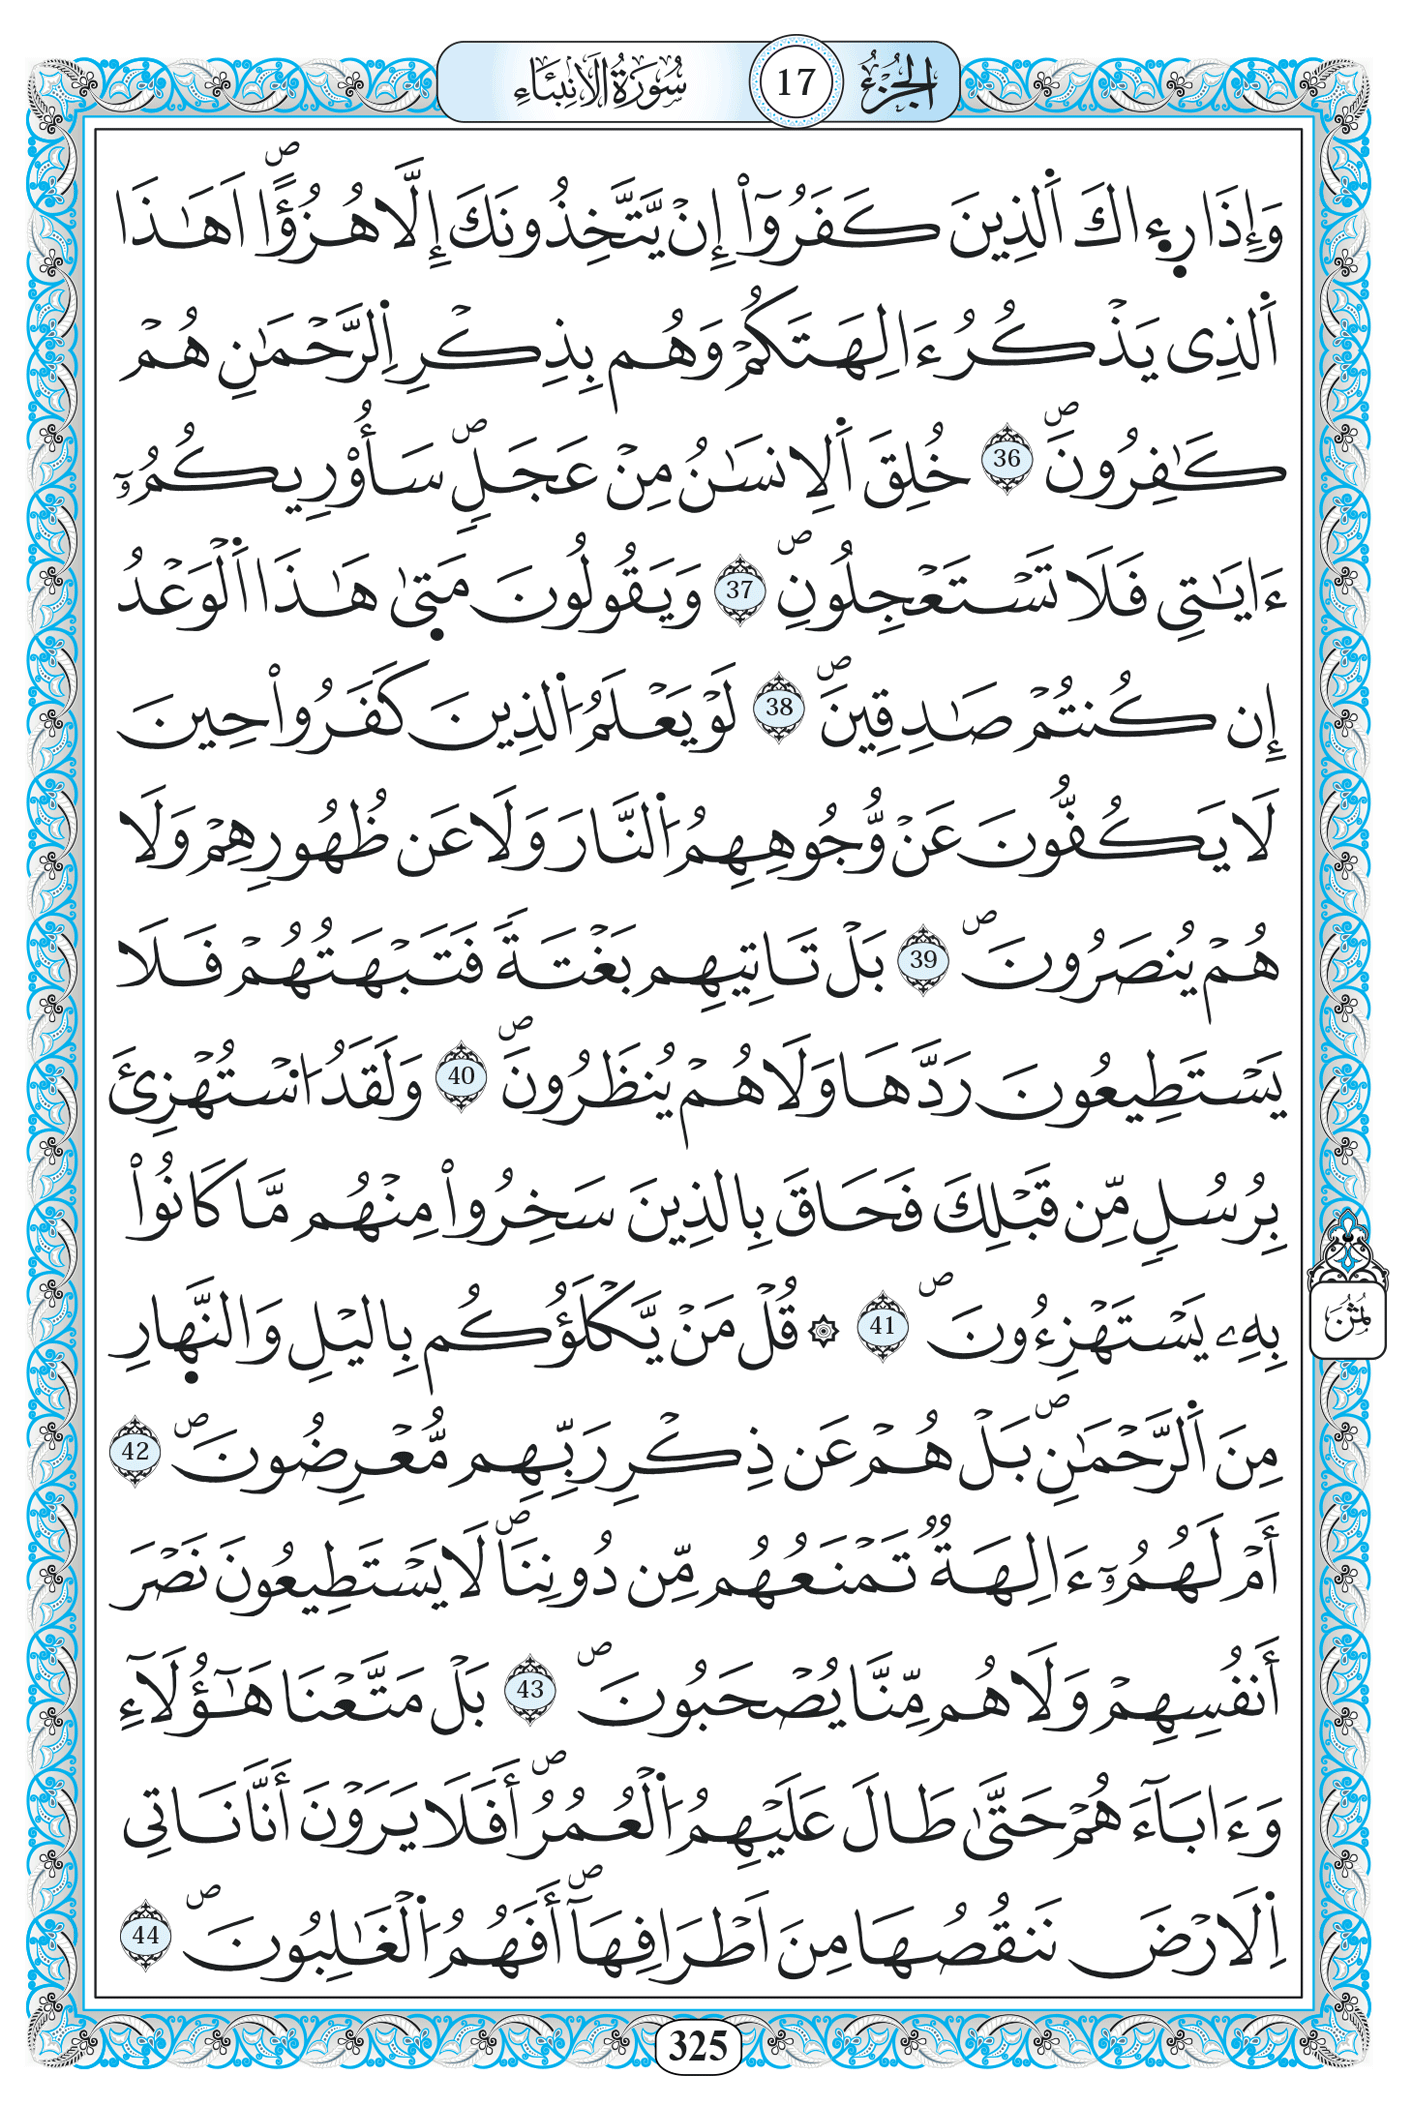 الجزء 17 سورة الانبئاء
وَإِذَا رِءاكَ اَ۬لذِينَ كَفَرُوٓاْ إِنْ يَّتَّخِذُونَكَ إِلَّا هُزُؤًا اَهَٰذَا
اَ۬لذِى يَذْكُرُ ءَالِهَتَكُمْ وَهُم بِذِكْرِ اِ۬لرَّحْمَٰنِ هُمْ
كَٰفِرُونَ 36 خُلِقَ اَ۬لِانسَٰنُ مِنْ عَجَلٍ سَأُوْرِيكُمُۥٓ
ءَايَٰتِى فَلَا تَسْتَعْجِلُونِ 37 وَيَقُولُونَ مَتىٰ هَٰذَا اَ۬لْوَعْدُ
إِن كُنتُمْ صَٰدِقِينَ 38 لَوْ يَعْلَمُ اُ۬لذِينَ كَفَرُواْ حِينَ
لَا يَكُفُّونَ عَنْ وُّجُوهِهِمُ اُ۬لنَّارَ وَلَا عَن ظُهُورِهِمْ وَلَا
هُمْ يُنصَرُونَ 39 بَلْ تَاتِيهِم بَغْتَةً فَتَبْهَتُهُمْ فَلَا
يَسْتَطِيعُونَ رَدَّهَا وَلَا هُمْ يُنظَرُونَ 40 وَلَقَدُ اُ۟سْتُهْزِئَ
بِرُسُلٍ مِّن قَبْلِكَ فَحَاقَ بِالذِينَ سَخِرُواْ مِنْهُم مَّا كَانُواْ
بِهِۦ يَسْتَهْزِءُونَ 41 ۞ قُلْ مَنْ يَّكْلَؤُكُم بِاليْلِ وَالنَّهارِ
ثُمُنُ
مِنَ اَ۬لرَّحْمَٰنِ بَلْ هُمْ عَن ذِكْرِ رَبِّهِم مُّعْرِضُونَ 42
أَمْ لَهُمُۥٓ ءَالِهَةٌ تَمْنَعُهُم مِّن دُونِنَا لَا يَسْتَطِيعُونَ نَصْرَ
أَنفُسِهِمْ وَلَا هُم مِّنَّا يُصْحَبُونَ 43 بَلْ مَتَّعْنَا هَٰٓؤُلَآءِ
وَءَابَآءَهُمْ حَتَّىٰ طَالَ عَلَيْهِمُ اُ۬لْعُمُرُ أَفَلَا يَرَوْنَ أَنَّا نَاتِى
اِ۬لَارْضَ نَنقُصُهَا مِنَ اَطْرَافِهَآ أَفَهُمُ اُ۬لْغَٰلِبُونَ 44
325